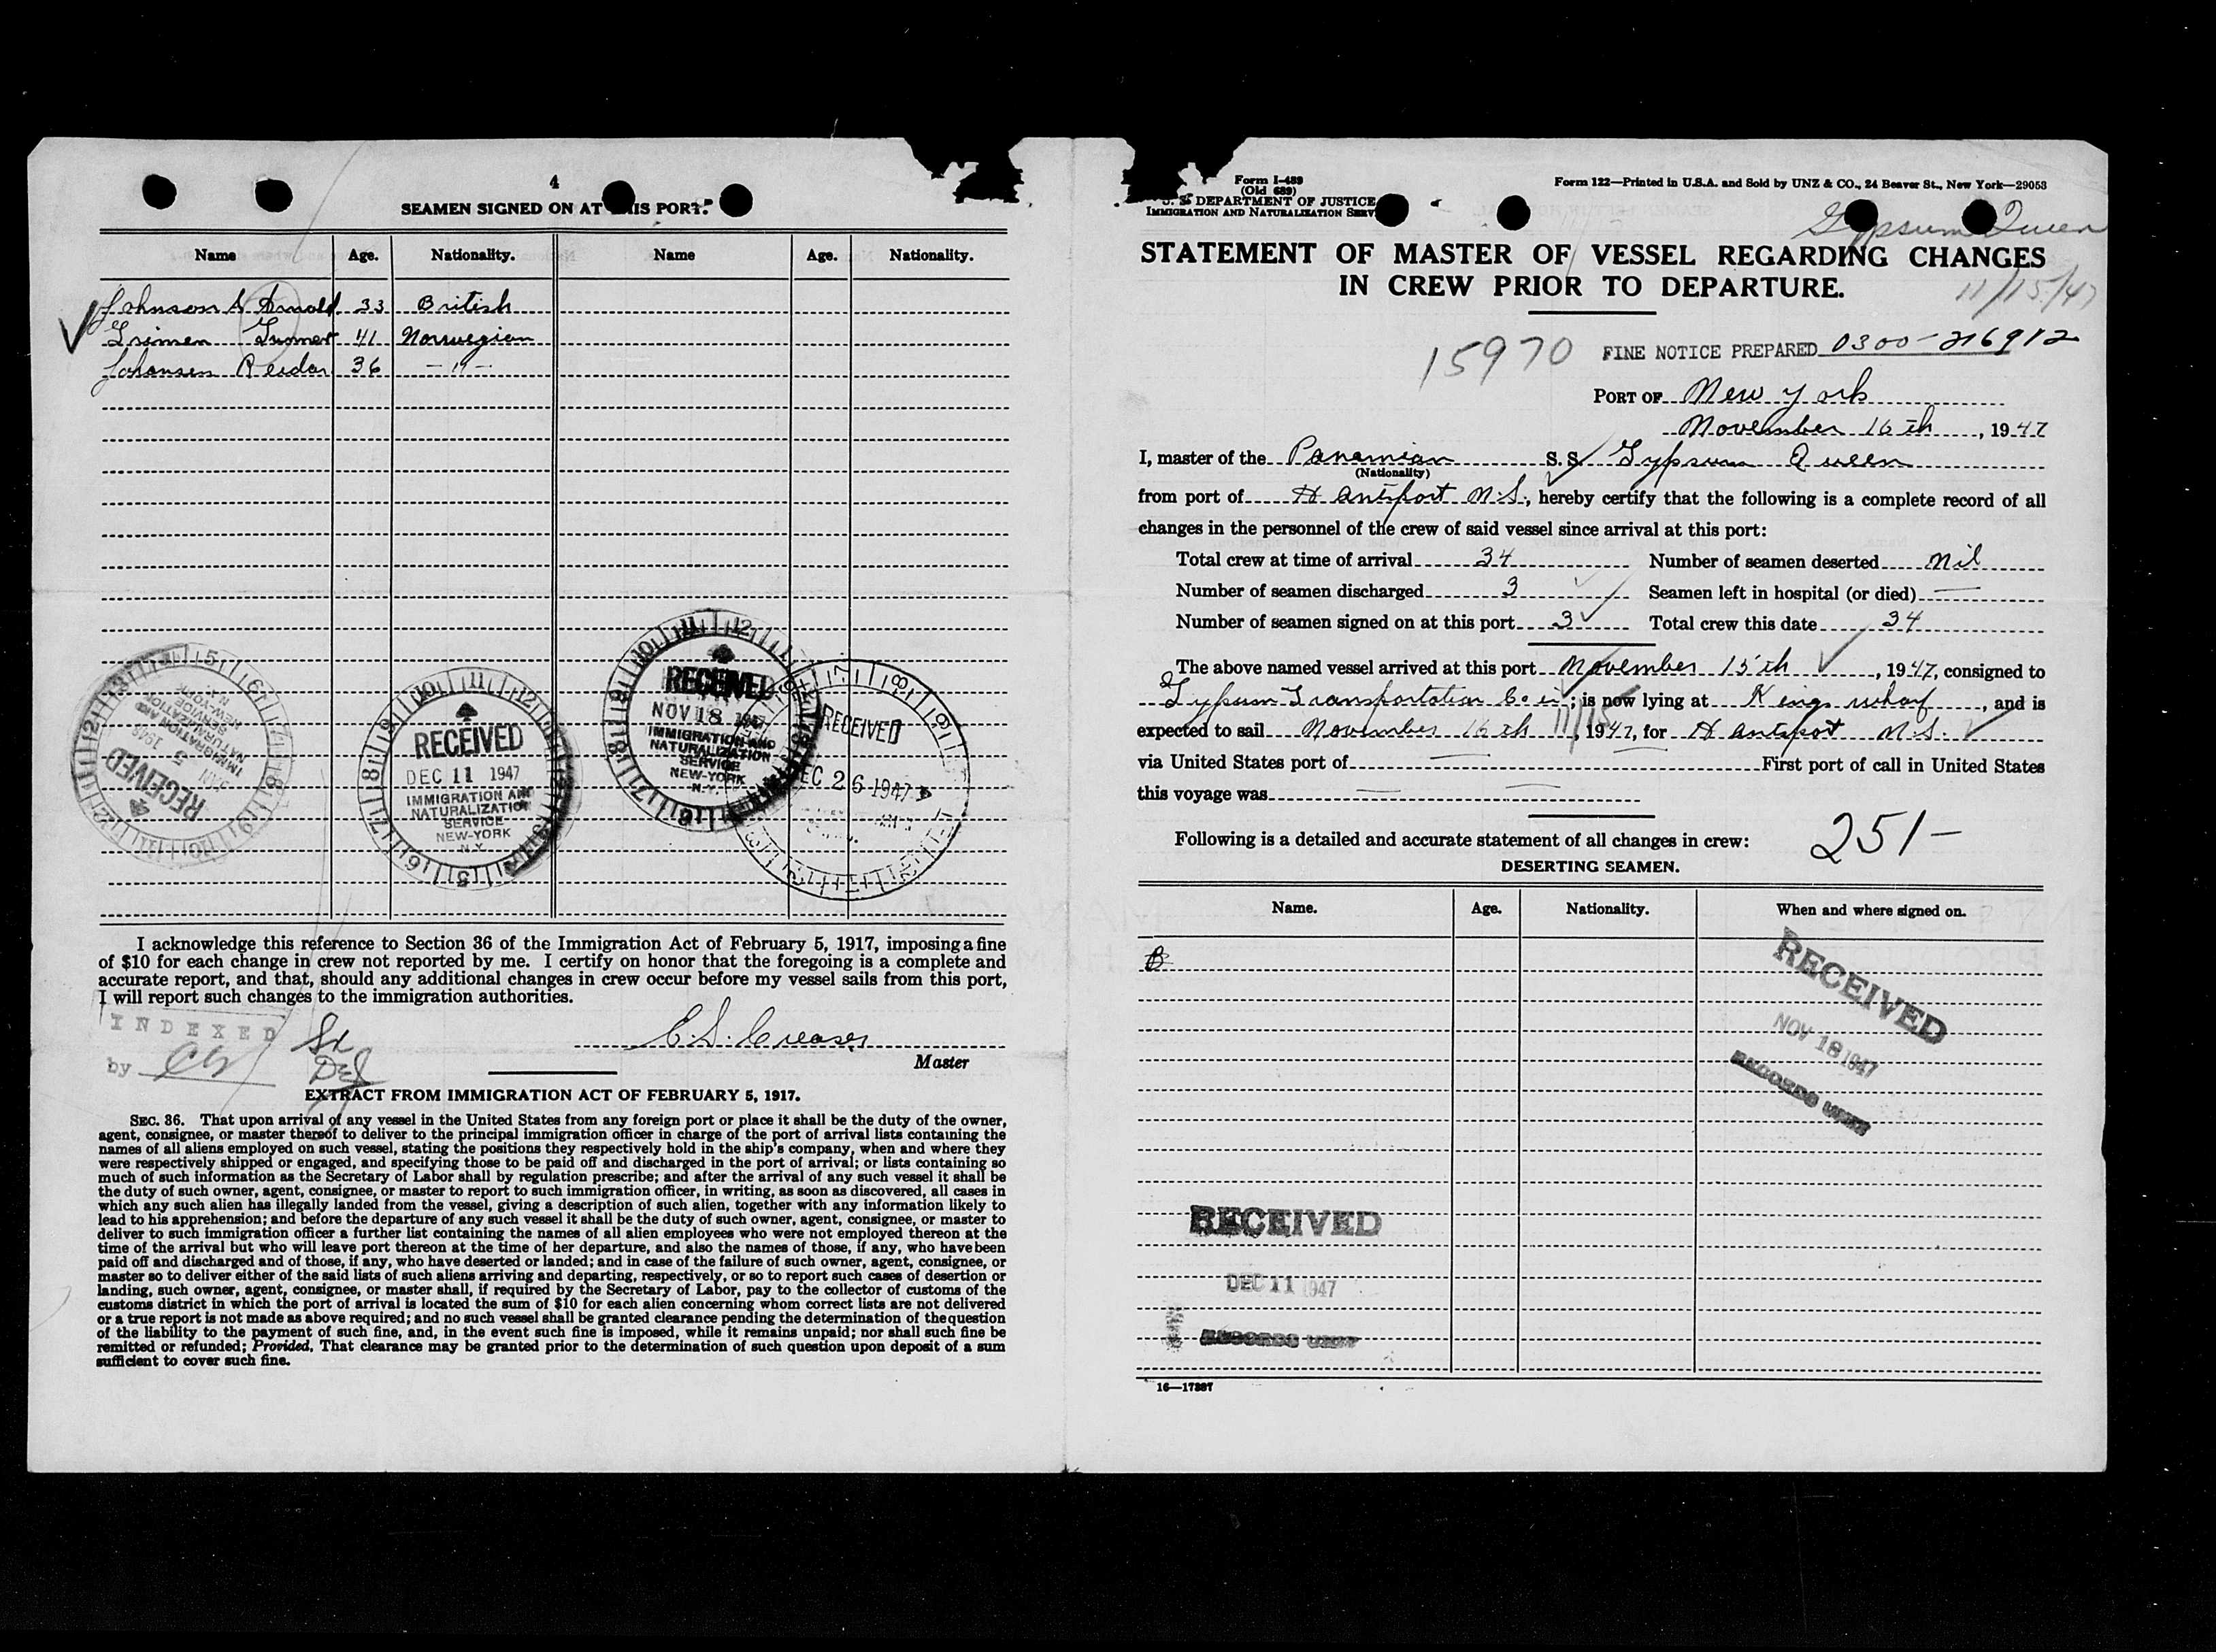 4
SEAMEN SIGNED ON AT THIS PORT.
Name Age. Nationality. Name Age. Nationality.
Johnson A Arnold 33 British
Grimen Gunnar 41 Norwegian
Johansen Reidar 36 - " -
RECEIVED
JAN 5 1948
IMMIGRATION AND
NATURALIZATION
SERVICE
NEW-YORK
N.Y.
RECEIVED
DEC 11 1947
IMMIGRATION AND
NATURALIZATION
SERVICE
NEW-YORK
N.Y.
RECEIVED
NOV 18 1947
IMMIGRATION AND
NATURALIZATION
SERVICE
NEW-YORK
N.Y.
RECEIVED
DEC 26 1947
I acknowledge this reference to Section 36 of the Immigration Act of February 5, 1917, imposing a fine
of $10 for each change in crew not reported by me. I certify on honor that the foregoing is a complete and
accurate report, and that, should any additional changes in crew occur before my vessel sails from this port,
I will report such changes to the immigration authorities.
INDEXED
by
E. S. Creaser
Master
EXTRACT FROM IMMIGRATION ACT OF FEBRUARY 5, 1917.
SEC. 36. That upon arrival of any vessel in the United States from any foreign port or place it shall be the duty of the owner,
agent, consignee, or master thereof to deliver to the principal immigration officer in charge of the port of arrival lists containing the
names of all aliens employed on such vessel, stating the positions they respectively hold in the ship's company, when and where they
were respectively shipped or engaged, and specifying those to be paid off and discharged in the port of arrival; or lists containing so
much of such information as the Secretary of Labor shall by regulation prescribe; and after the arrival of any such vessel it shall be
the duty of such owner, agent, consignee, or master to report to such immigration officer, in writing, as soon as discovered, all cases in
which any such alien has illegally landed from the vessel, giving a description of such alien, together with any information likely to
lead to his apprehension; and before the departure of any such vessel it shall be the duty of such owner, agent, consignee, or master to
deliver to such immigration officer a further list containing the names of all alien employees who were not employed thereon at the
time of the arrival but who will leave port thereon at the time of her departure, and also the names of those, if any, who have been
paid off and discharged and of those, if any, who have deserted or landed; and in case of the failure of such owner, agent, consignee, or
master so to deliver either of the said lists of such aliens arriving and departing, respectively, or so to report such cases of desertion or
landing, such owner, agent, consignee, or master shall, if required by the Secretary of Labor, pay to the collector of customs of the
customs district in which the port of arrival is located the sum of $10 for each alien concerning whom correct lists are not delivered
or a true report is not made as above required; and no such vessel shall be granted clearance pending the determination of the question
of the liability to the payment of such fine, and, in the event such fine is imposed, while it remains unpaid; nor shall such fine be
remitted or refunded; Provided, That clearance may be granted prior to the determination of such question upon deposit of a sum
sufficient to cover such fine.
Form I-489
(Old 689)
U. S. DEPARTMENT OF JUSTICE
IMMIGRATION AND NATURALIZATION SERV
Form 122—Printed in U.S.A. and Sold by UNZ & CO., 24 Beaver St., New York—29053
Gypsum Queen
STATEMENT OF MASTER OF VESSEL REGARDING CHANGES
IN CREW PRIOR TO DEPARTURE.
11/15/47
15970 FINE NOTICE PREPARED 0300-216912
PORT OF New York
November 16th, 1947
I, master of the Panamian S. S. Gypsum Queen
(Nationality)
from port of Hantsport N.S., hereby certify that the following is a complete record of all
changes in the personnel of the crew of said vessel since arrival at this port:
Total crew at time of arrival 34 Number of seamen deserted Nil
Number of seamen discharged 3 Seamen left in hospital (or died) —
Number of seamen signed on at this port 3 Total crew this date 34
The above named vessel arrived at this port November 15th, 1947, consigned to
Gypsum Transportation Co; is now lying at Kings wharf, and is
expected to sail November 16th 11/15, 1947, for Hantsport N.S.
via United States port of — First port of call in United States
this voyage was — —
Following is a detailed and accurate statement of all changes in crew: 251-
DESERTING SEAMEN.
Name. Age. Nationality. When and where signed on.
RECEIVED
NOV 18 1947
RECORDS UNIT
RECEIVED
DEC 11 1947
RECORDS UNIT
16—17387